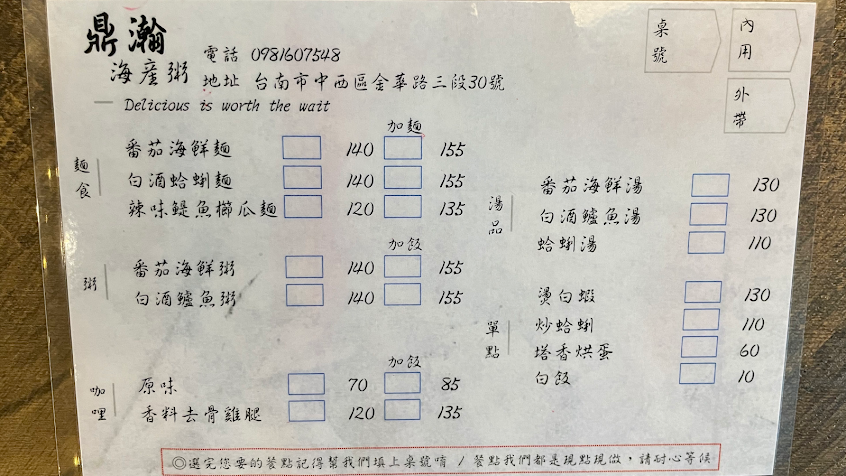 鼎瀚
海產粥
電話 0981607548
地址 台南市中西區金華路三段30號
Delicious is worth the wait
桌號
內用
外帶
麵食
加麵
番茄海鮮麵 140 155
白酒蛤蜊麵 140 155
辣味鯷魚櫛瓜麵 120 135
粥
加飯
番茄海鮮粥 140 155
白酒鱸魚粥 140 155
咖哩
加飯
原味 70 85
香料去骨雞腿 120 135
湯品
番茄海鮮湯 130
白酒鱸魚湯 130
蛤蜊湯 110
單點
燙白蝦 130
炒蛤蜊 110
塔香烘蛋 60
白飯 10
◎選完您要的餐點記得幫我們填上桌號唷 / 餐點我們都是現點現做，請耐心等候